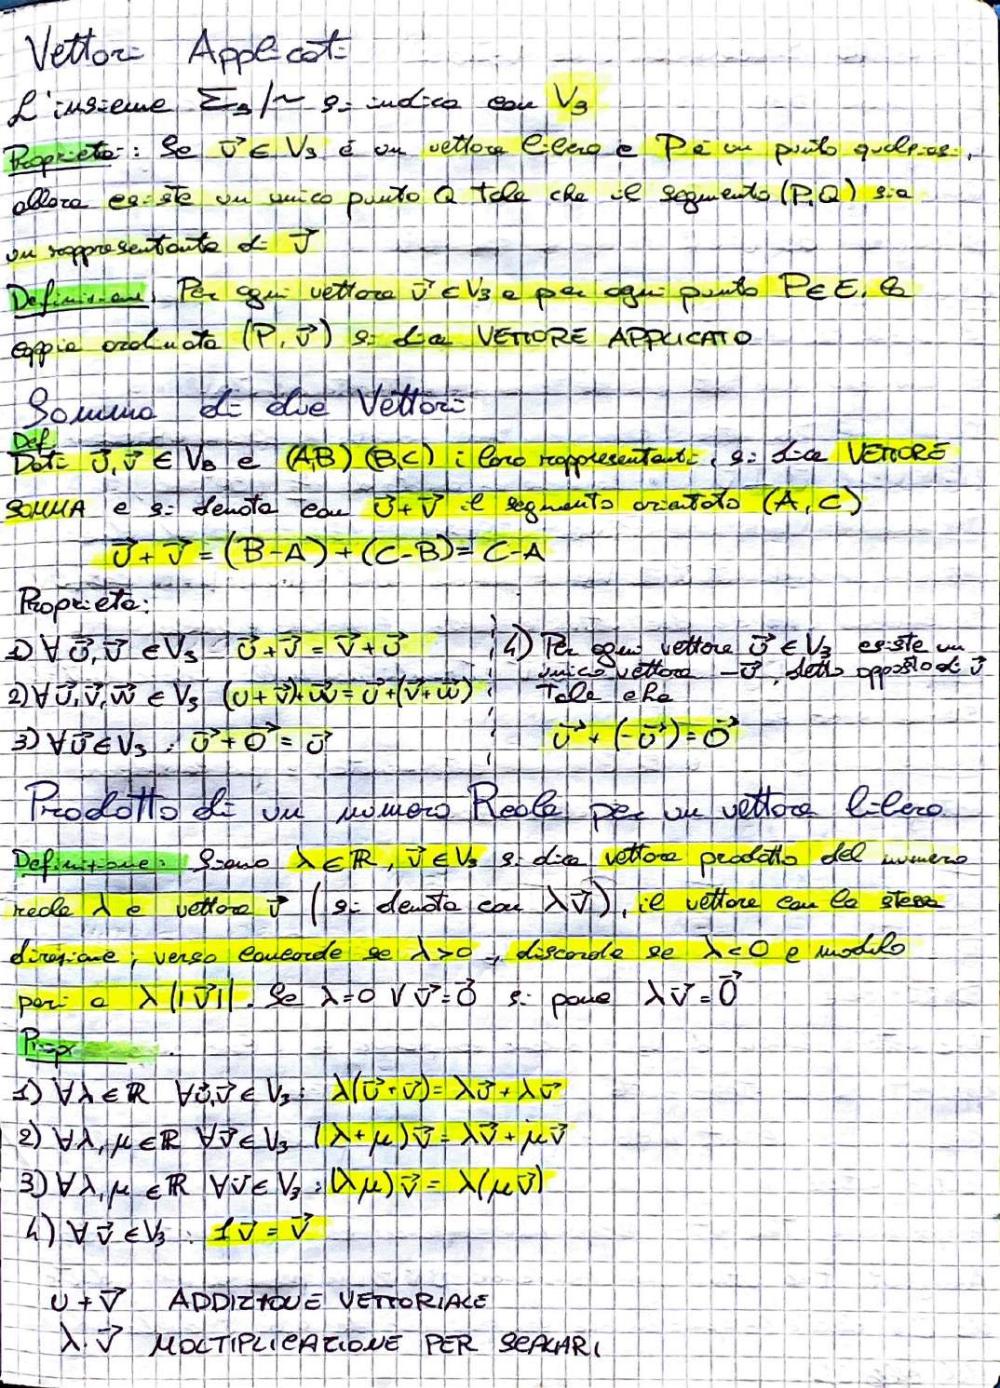 Vettori Applicati
L'insieme Σ₃/~ si indica con V₃
Proprietà: Se v⃗ ∈ V₃ è un vettore libero e P è un punto qualsiasi,
allora esiste un unico punto Q tale che il segmento (P,Q) sia
un rappresentante di v⃗
Definizione: Per ogni vettore v⃗ ∈ V₃ e per ogni punto P ∈ E, la
coppia ordinata (P, v⃗) si dice VETTORE APPLICATO
Somma di due Vettori
Def
Dati u⃗, v⃗ ∈ V₃ e (A,B) (B,C) i loro rappresentanti, si dice VETTORE
SOMMA e si denota con u⃗+v⃗ il segmento orientato (A,C)
u⃗+v⃗ = (B-A)+(C-B)= C-A
Proprietà:
1) ∀ u⃗,v⃗ ∈ V₃ u⃗+v⃗ = v⃗+u⃗
2) ∀ u⃗,v⃗,w⃗ ∈ V₃ (u+v⃗)+w⃗ = u⃗+(v⃗+w⃗)
3) ∀ u⃗ ∈ V₃ : u⃗+0⃗ = u⃗
4) Per ogni vettore u⃗ ∈ V₃ esiste un
unico vettore -u⃗, detto opposto di u⃗
tale che
u⃗+(-u⃗)=0⃗
Prodotto di un numero Reale per un vettore libero
Definizione: Siano λ ∈ ℝ, v⃗ ∈ V₃ si dice vettore prodotto del numero
reale λ e vettore v⃗ (si denota con λv⃗), il vettore con la stessa
direzione, verso concorde se λ>0, discorde se λ<0 e modulo
pari a λ||v⃗||. Se λ=0 ∨ v⃗=0⃗ si pone λv⃗=0⃗
Prop
1) ∀λ ∈ ℝ ∀u⃗,v⃗ ∈ V₃: λ(u⃗+v⃗)= λu⃗+λv⃗
2) ∀λ, μ ∈ ℝ ∀v⃗ ∈ V₃ (λ+μ)v⃗ = λv⃗+μv⃗
3) ∀λ,μ ∈ ℝ ∀v⃗ ∈ V₃ : (λμ)v⃗ = λ(μv⃗)
4) ∀ v⃗ ∈ V₃ : 1v⃗ = v⃗
u+v⃗ ADDIZIONE VETTORIALE
λ·v⃗ MOLTIPLICAZIONE PER SCALARI